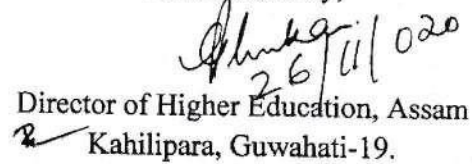 26/11/020
Director of Higher Education, Assam
Kahilipara, Guwahati-19.